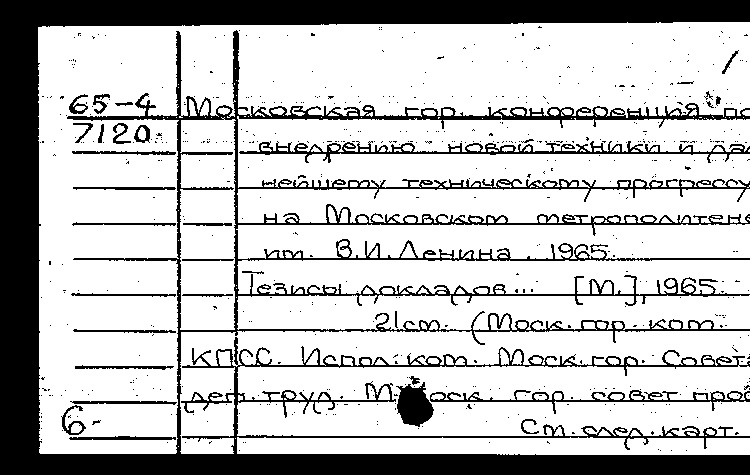 65-4 Московская гор. конференция по
7120. внедрению новой техники и
нейшему техническому прогрессу
на Московском метрополитене
им. В.И.Ленина. 1965.
Тезисы докладов... [М.], 1965.
21см. (Моск.гор. ком.
КПСС. Испол.ком. Моск.гор. Совета
деп. труд. Моск. гор. совет
6. См.след.карт.